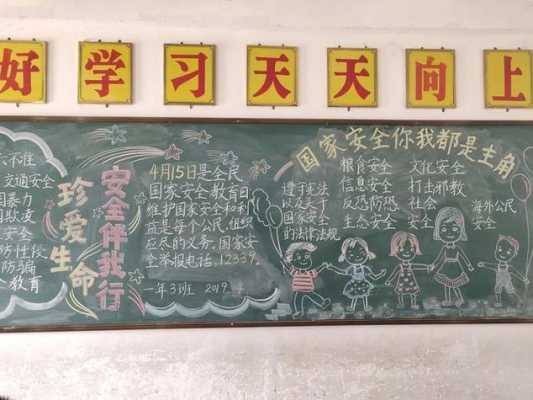 好 学 习 天 天 向 上
六不准
交通安全
暴力
安全
防性侵
防骗
教育
珍爱生命
安全伴我行
4月15日是全民
国家安全教育日
维护国家安全和利
益是每个公民,组织
应尽的义务,国家安
全举报电话,12339.
一年3班 2019
国家安全你我都是主角
遵守宪法
以及关于
国家安全
的法律法规
粮食安全
信息安全
反恐防恐
生态安全
文化安全
打击邪教
社会
安全
海外公民
安全